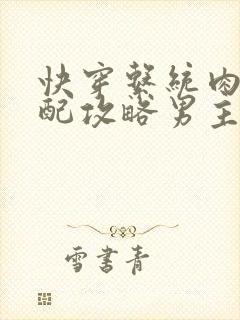 快穿繫統肉
配攻略男主
雪書青